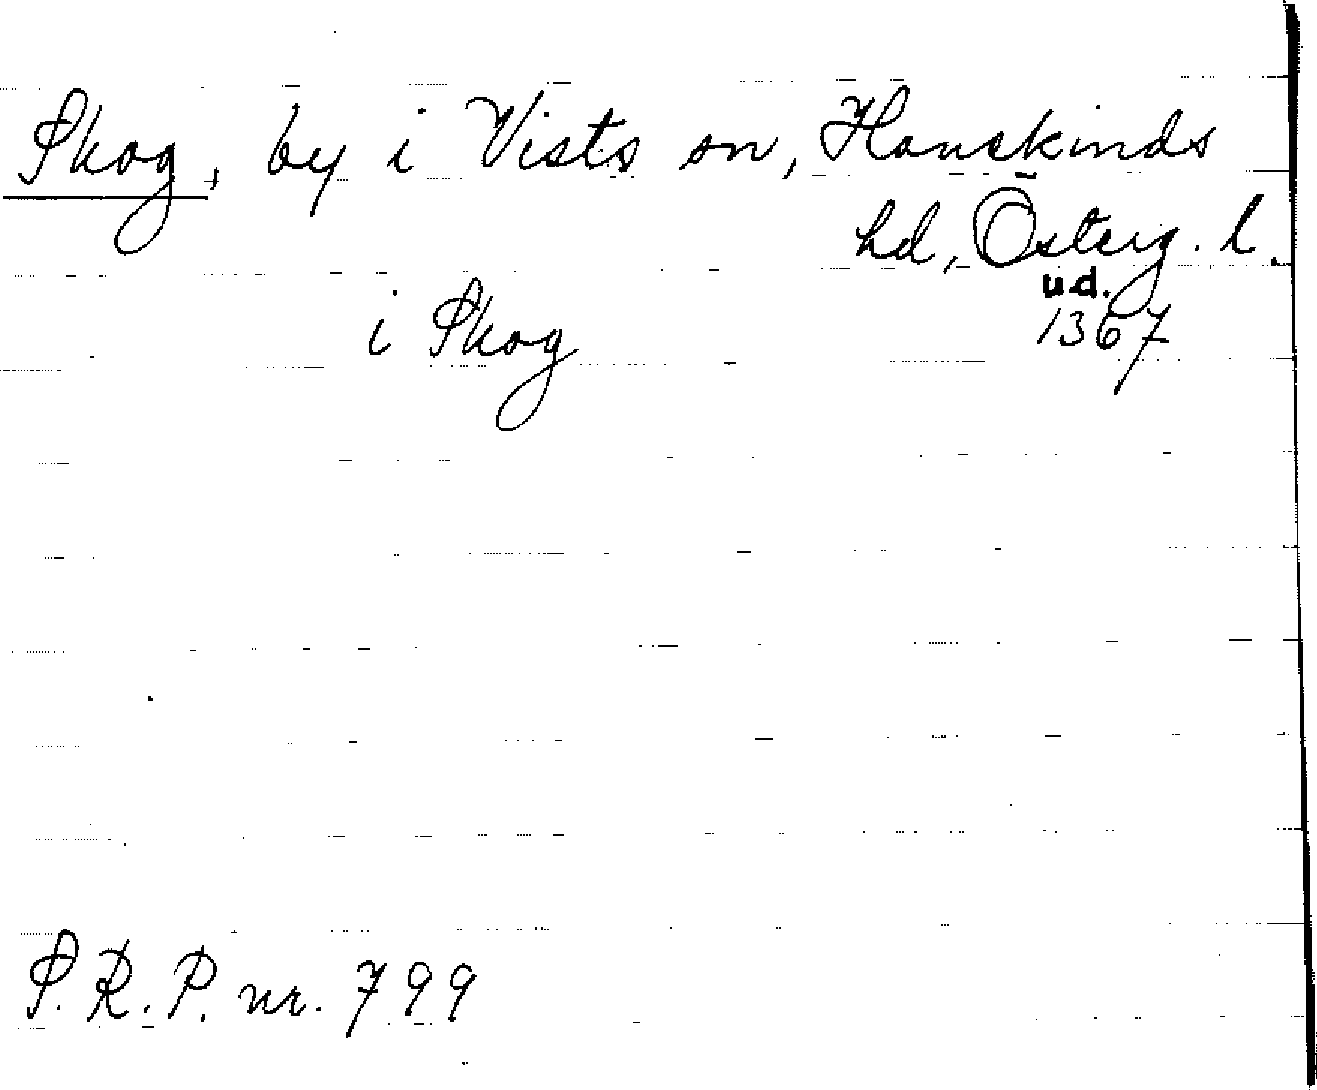 Skog, by i Vists sn, Hanekinds
hd, Österg. l.
ud.
i Skog 1367
S.R.P. nr. 799